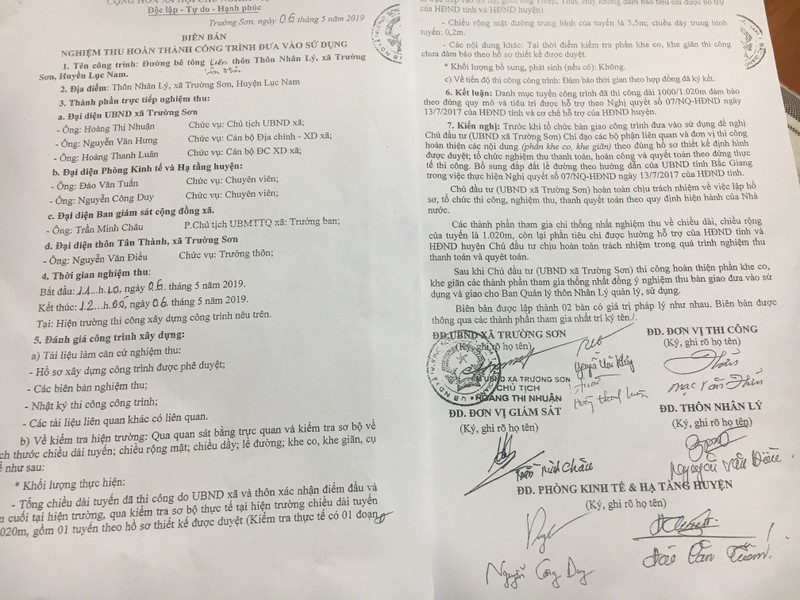 Độc lập - Tự do - Hạnh phúc
Trường Sơn, ngày 06 tháng 5 năm 2019
BIÊN BẢN
NGHIỆM THU HOÀN THÀNH CÔNG TRÌNH ĐƯA VÀO SỬ DỤNG
1. Tên công trình: Đường bê tông thôn Nhân Lý, xã Trường
Sơn, Huyện Lục Nam.
2. Địa điểm: Thôn Nhân Lý, xã Trường Sơn, Huyện Lục Nam
3. Thành phần trực tiếp nghiệm thu:
a. Đại diện UBND xã Trường Sơn
- Ông: Hoàng Thi Nhuận Chức vụ: Chủ tịch UBND xã;
- Ông: Nguyễn Văn Hưng Chức vụ: Cán bộ Địa chính - XD xã;
- Ông: Hoàng Thanh Luân Chức vụ: Cán bộ ĐC XD xã;
b. Đại diện Phòng Kinh tế và Hạ tầng huyện:
- Ông: Đào Văn Tuấn Chức vụ: Chuyên viên;
- Ông: Nguyễn Công Duy Chức vụ: Chuyên viên;
c. Đại diện Ban giám sát cộng đồng xã.
- Ông: Trần Minh Châu P.Chủ tịch UBMTTQ xã: Trưởng ban;
d. Đại diện thôn Tân Thành, xã Trường Sơn
- Ông: Nguyễn Văn Điều Chức vụ: Trưởng thôn;
4. Thời gian nghiệm thu:
Bắt đầu: 11 h 10, ngày 06 tháng 5 năm 2019.
Kết thúc: 12 h 00, ngày 06 tháng 5 năm 2019.
Tại: Hiện trường thi công xây dựng công trình nêu trên.
5. Đánh giá công trình xây dựng:
a) Tài liệu làm căn cứ nghiệm thu:
- Hồ sơ xây dựng công trình được phê duyệt;
- Các biên bản nghiệm thu;
- Nhật ký thi công công trình;
- Các tài liệu liên quan khác có liên quan.
b) Về kiểm tra hiện trường: Qua quan sát bằng trực quan và kiểm tra sơ bộ về
ch thước chiều dài tuyến; chiều rộng mặt; chiều dầy; lề đường; khe co, khe giãn, cụ
ể như sau:
* Khối lượng thực hiện:
- Tổng chiều dài tuyến đã thi công do UBND xã và thôn xác nhận điểm đầu và
cuối tại hiện trường, qua kiểm tra sơ bộ thực tế tại hiện trường chiều dài tuyến
020m, gồm 01 tuyến theo hồ sơ thiết kế được duyệt (Kiểm tra thực tế có 01 đoạn
của HĐND tỉnh và HĐND huyện)
- Chiều rộng mặt đường trung bình của tuyến là 3,5m; chiều dày trung bình
tuyến: 0,2m.
- Các nội dung khác: Tại thời điểm kiểm tra phần khe co, khe giãn thi công
chưa đảm bảo theo hồ sơ thiết kế được duyệt.
* Khối lượng bổ sung, phát sinh (nếu có): Không.
c) Về tiến độ thi công công trình: Đảm bảo thời gian theo hợp đồng đã ký kết.
6. Kết luận: Danh mục tuyến công trình đã thi công dài 1000/1.020m đảm bảo
theo đúng quy mô và tiêu trí được hỗ trợ theo Nghị quyết số 07/NQ-HĐND ngày
13/7/2017 của HĐND tỉnh và cơ chế hỗ trợ của HĐND huyện.
7. Kiến nghị: Trước khi tổ chức bàn giao công trình đưa vào sử dụng đề nghị
Chủ đầu tư (UBND xã Trường Sơn) Chỉ đạo các bộ phận liên quan và đơn vị thi công
hoàn thiện các nội dung (phần khe co, khe giãn) theo đúng hồ sơ thiết kế định hình
được duyệt; tổ chức nghiệm thu thanh toán, hoàn công và quyết toán theo đúng thực
tế thi công. Bổ sung đắp đất lề đường theo hướng dẫn của UBND tỉnh Bắc Giang
trong việc thực hiện Nghị quyết số 07/NQ-HĐND ngày 13/7/2017 của HĐND tỉnh.
Chủ đầu tư (UBND xã Trường Sơn) hoàn toàn chịu trách nhiệm về việc lập hồ
sơ, tổ chức thi công, nghiệm thu, thanh quyết toán theo quy định hiện hành của Nhà
nước.
Các thành phần tham gia chỉ thống nhất nghiệm thu về chiều dài, chiều rộng
của tuyến là 1.020m, còn lại phần tiêu chí được hưởng hỗ trợ của HĐND tỉnh và
HĐND huyện Chủ đầu tư chịu hoàn toàn trách nhiệm trong quá trình nghiệm thu
thanh toán và quyết toán.
Sau khi Chủ đầu tư (UBND xã Trường Sơn) thi công hoàn thiện phần khe co,
khe giãn các thành phần tham gia thống nhất đồng ý nghiệm thu bàn giao đưa vào sử
dụng và giao cho Ban Quản lý thôn Nhân Lý quản lý, sử dụng.
Biên bản được lập thành 02 bản có giá trị pháp lý như nhau. Biên bản được
thông qua các thành phần tham gia nhất trí ký tên./.
ĐD.UBND XÃ TRƯỜNG SƠN ĐD. ĐƠN VỊ THI CÔNG
(Ký, ghi rõ họ tên) (Ký, ghi rõ họ tên)
UBND XÃ TRƯỜNG SƠN
CHỦ TỊCH
HOÀNG THI NHUẬN
Hoàng Thanh Luân
ĐD. ĐƠN VỊ GIÁM SÁT ĐD. THÔN NHÂN LÝ
(Ký, ghi rõ họ tên) (Ký, ghi rõ họ tên)
Trần Minh Châu Nguyễn Văn Điều
ĐD. PHÒNG KINH TẾ & HẠ TẦNG HUYỆN
(Ký, ghi rõ họ tên)
Nguyễn Công Duy Đào Văn Tuấn